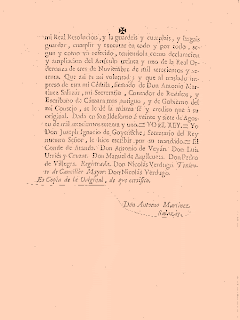 mi Real Resolucion, y la guardeis y cumplais, y hagais
guardar, cumplir y executar en todo y por todo, se-
gun y como va referido, teniendola como declaracion
y ampliacion del Artículo octavo y uno de la Real Or-
denanza de tres de Noviembre de mil setecientos y se-
tenta. Que así es mi voluntad; y que al traslado im-
preso de esta mi Cédula, firmado de Don Antonio Mar-
tinez Salazar, mi Secretario, Contador de Resultas, y
Escribano de Cámara mas antiguo, y de Gobierno del
mi Consejo, se le dé la misma fé y credito que á su
original. Dada en San Ildefonso á veinte y siete de Agos-
to de mil setecientos setenta y uno = YO EL REY. = Yo
Don Joseph Ignacio de Goyeneche, Secretario del Rey
nuestro Señor, le hice escribir por su mandado. = El
Conde de Aranda. Don Antonio de Veyán. Don Luis
Urries y Cruzat. Don Manuel de Azpilcueta. Don Pedro
de Villegas. Registrada. Don Nicolás Verdugo. Tenien-
te de Canciller Mayor: Don Nicolás Verdugo.
Es Copia de la Original, de que certifico.
Don Antonio Martinez
Salazar.